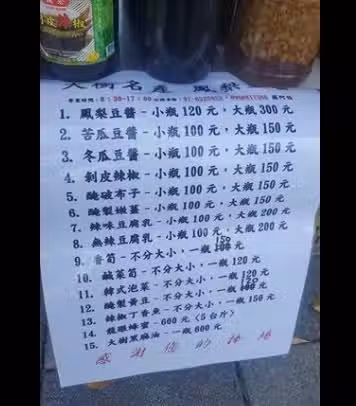 大樹名產 鳳梨
營業時間：8：30-17：00
1. 鳳梨豆醬－小瓶120元，大瓶300元
2. 苦瓜豆醬－小瓶100元，大瓶150元
3. 冬瓜豆醬－小瓶100元，大瓶150元
4. 剝皮辣椒－小瓶100元，大瓶150元
5. 醃破布子－小瓶100元，大瓶150元
6. 醃製嫩薑－小瓶100元，大瓶150元
7. 辣味豆腐乳－小瓶100元，大瓶200元
8. 無辣豆腐乳－小瓶100元，大瓶200元
9. 香筍－不分大小，一瓶150元
10. 鹹菜筍－不分大小，一瓶120元
11. 韓式泡菜－不分大小，一瓶120元
12. 醃製黃豆－不分大小，一瓶元
13. 辣椒丁香魚－不分大小，一瓶150元
14. 龍眼蜂蜜－600元（5台斤）
15. 大樹黑麻油－一瓶600元
感謝您的